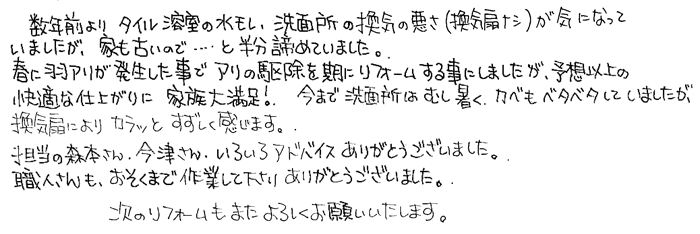 数年前より タイル浴室の水モレ、洗面所の換気の悪さ(換気扇ナシ)が気になって
いましたが、家も古いので‥‥と半分諦めていました。
春に羽アリが発生した事でアリの駆除を期にリフォームする事にしましたが、予想以上の
快適な仕上がりに 家族大満足!. 今まで洗面所はむし暑く、カベもベタベタしていましたが、
換気扇によりカラッとすずしく感じます。
担当の森本さん・今津さん・いろいろアドバイスありがとうございました。
職人さんも、おそくまで作業して下さりありがとうございました。
次のリフォームもまたよろしくお願いいたします。